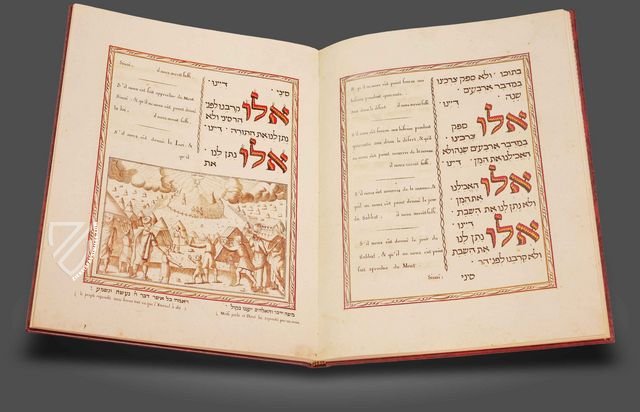 בתוכו · ולא ספק צרכינו
במדבר ארבעים
שנה · דיינו ·
אלו ספק
צרכינו ·
במדבר ארבעים שנה ולא
האכילנו את המן · דיינו ·
אלו האכילנו
את המן ·
ולא נתן לנו את השבת
דיינו ·
אלו נתן לנו
את השבת
ולא קרבנו לפני הר ·
סיני
& qu'il n'eut point fourni aux
besoins pendant quarante
ans dans le désert. il nous auroit suffi.
S'il nous eût fourni aux besoins pendant
quarante ans dans le désert, & qu'il
n'eût point nourris de la manne
il nous auroit suffi.
S'il nous eût nourris de la manne, &
qu'il n'eût point donné le jour
du Sabbat, il nous auroit suffi.
S'il nous eût donné le jour du
Sabbat, & qu'il ne nous eût
fait approcher du Mont
Sinaï;
סיני · דיינו ·
אלו קרבנו לפני
הר סיני ולא
נתן לנו את התורה · דיינו ·
אלו נתן לנו
את
Sinaï; il nous auroit suffi.
S'il nous eût fait approcher du Mont
Sinaï, & qu'il n'eût point donné
la loi, il nous auroit suffi.
S'il nous eût donné la Loi, &
qu'il
משה ידבר והאלהים יעננו בקול ·
ויאמרו כל אשר דבר ה' נעשה ונשמע ·